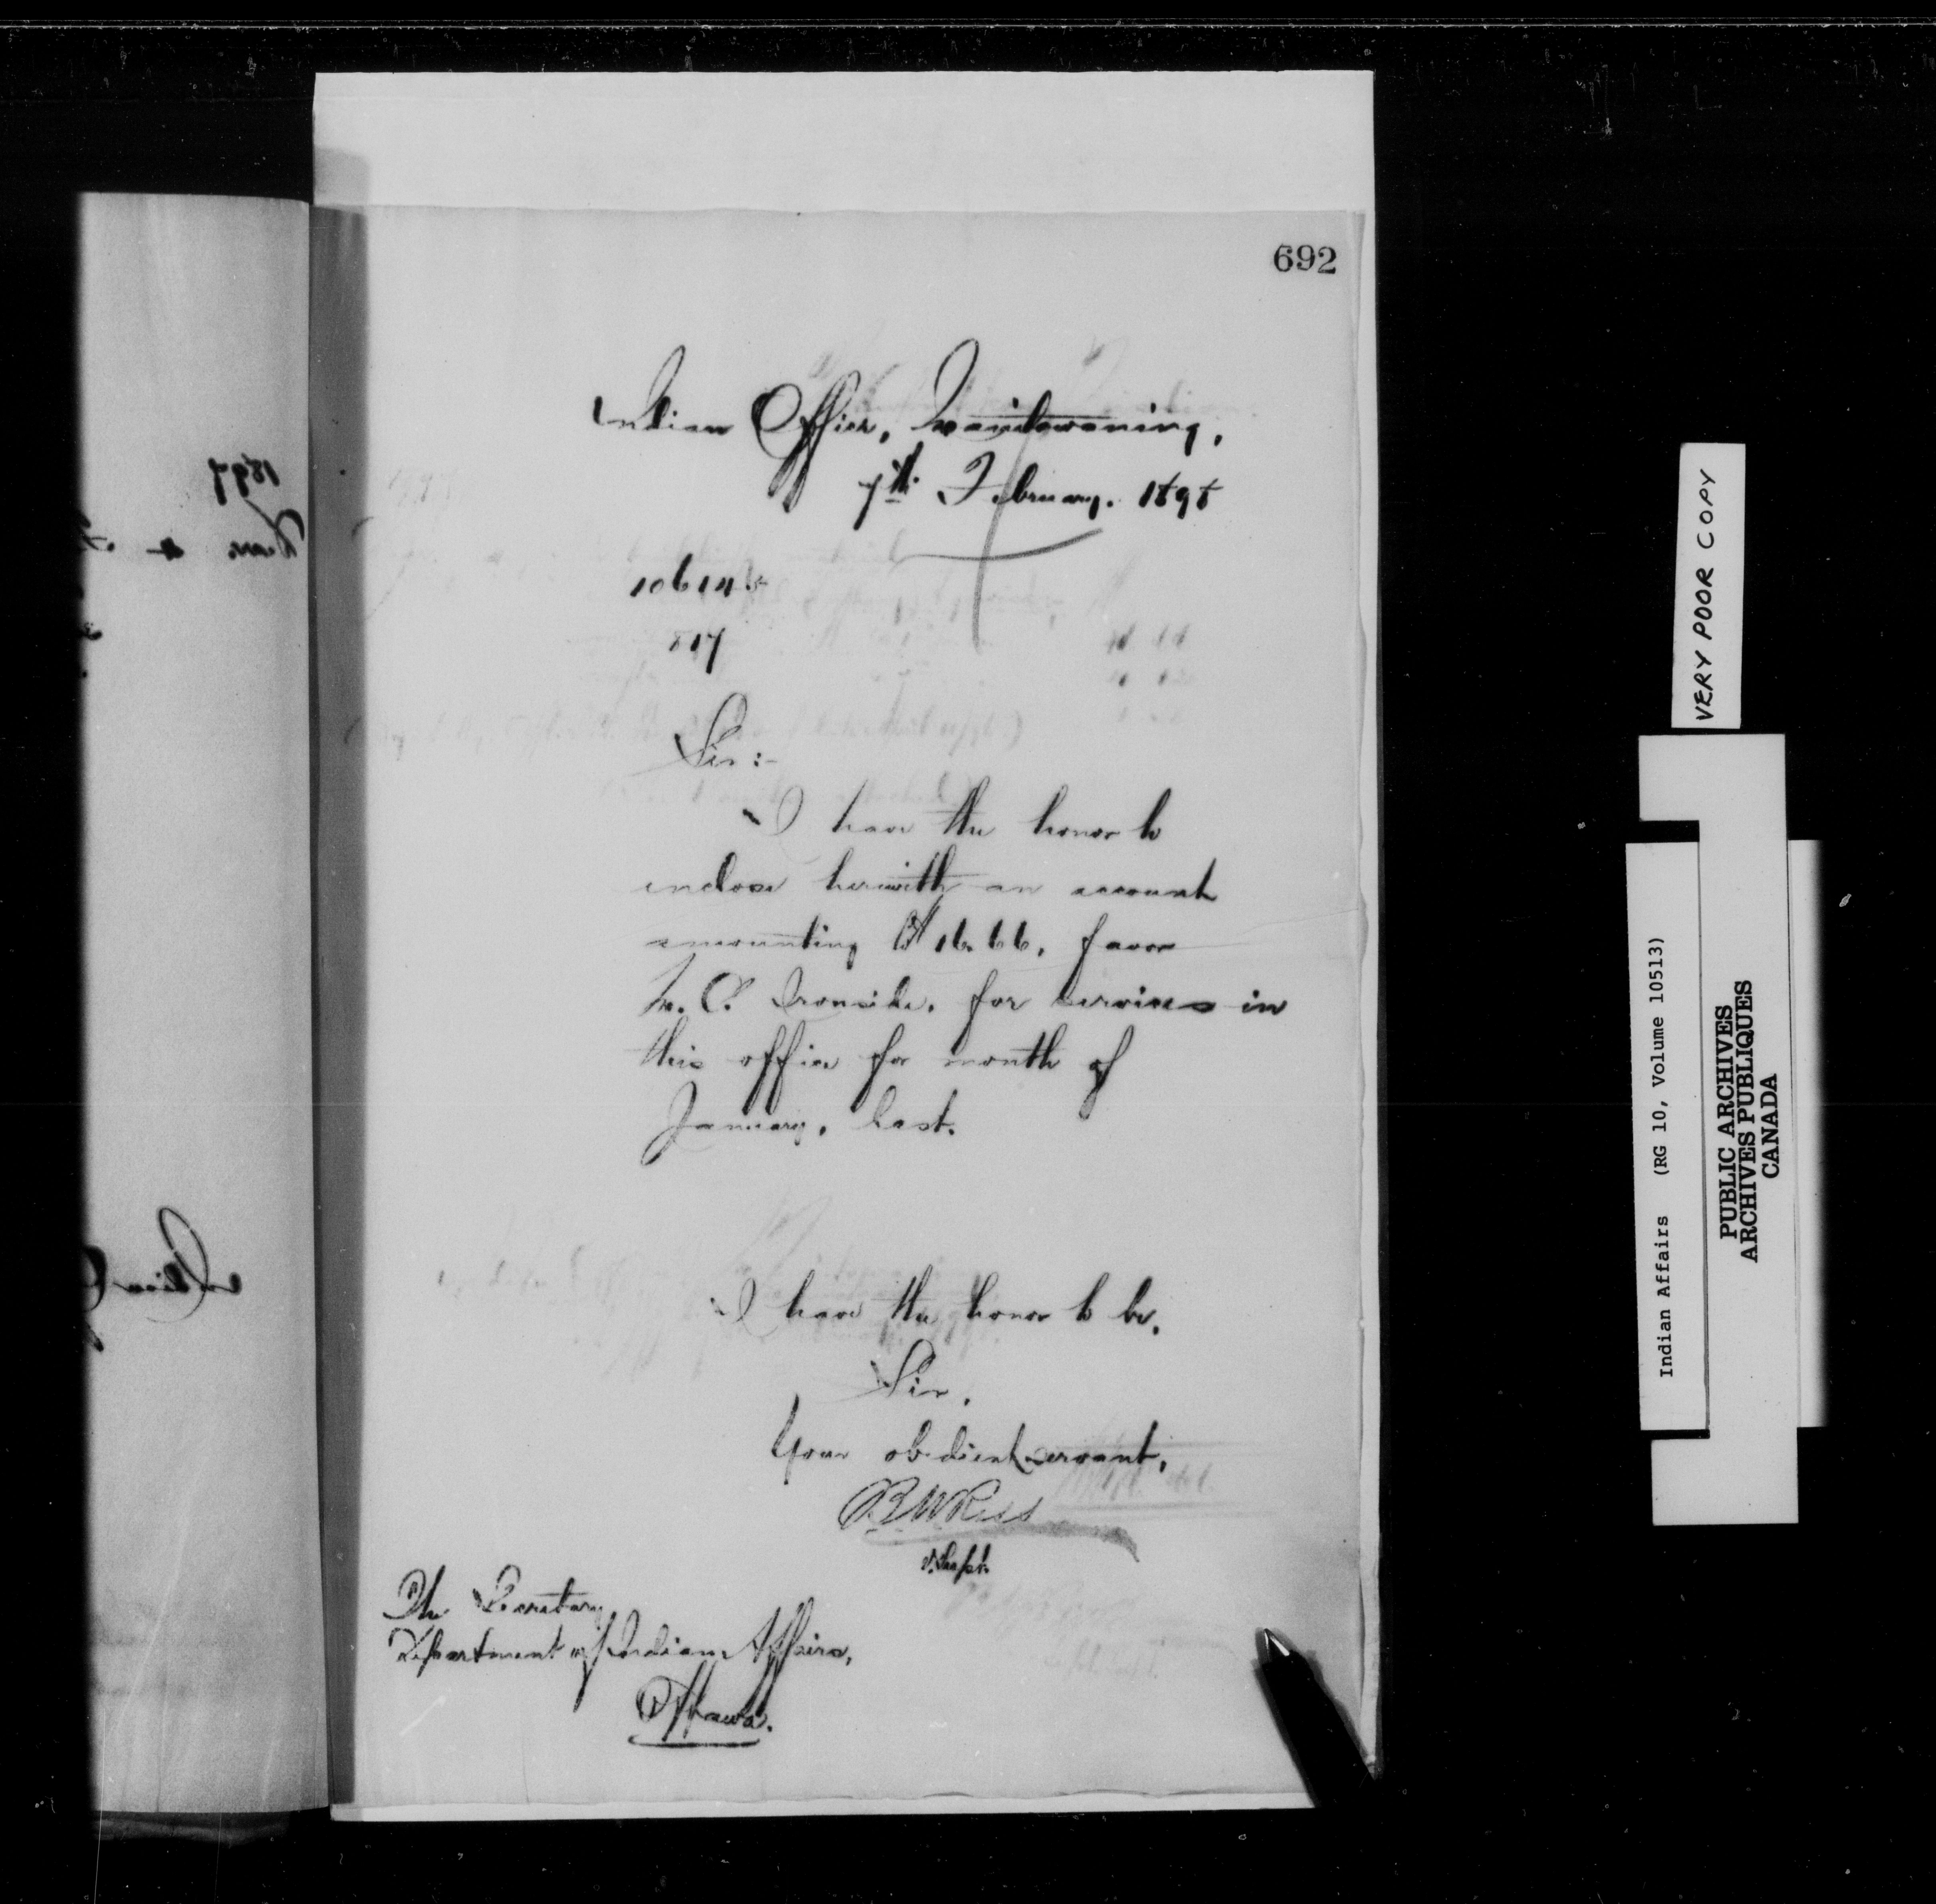 692
Indian Office, Manitowaning,
7th February. 1898
10614
817
Sir:-
I have the honor to
enclose herewith an account
amounting $16.66, favor
M. C. Ironside. for services in
this office for month of
January, last.
I have the honor to be.
Sir,
Your obedient servant,
BWRoss
V. Supt.
The Secretary
Department of Indian Affairs,
Ottawa.
1897
VERY POOR COPY
Indian Affairs (RG 10, Volume 10513)
PUBLIC ARCHIVES
ARCHIVES PUBLIQUES
CANADA